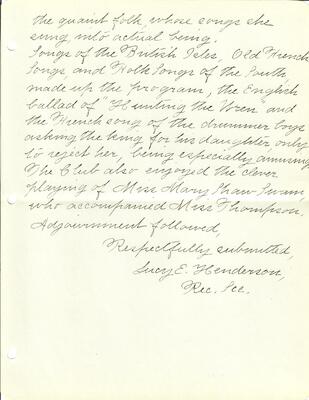 the quaint folk whose songs she
sung into actual being.
Songs of the British Isles, Old French
Songs, and Folk Songs of the South,
made up the program, the English
ballad of "Hunting the Wren" and
the French song of the drummer boys
asking the king for his daughter, only
to reject her, being especially amusing.
The Club also enjoyed the clever
playing of Miss Mary Shaw Swain,
who accompanied Miss Thompson.
Adjournment followed,
Respectfully submitted,
Lucy E. Henderson,
Rec. Sec.